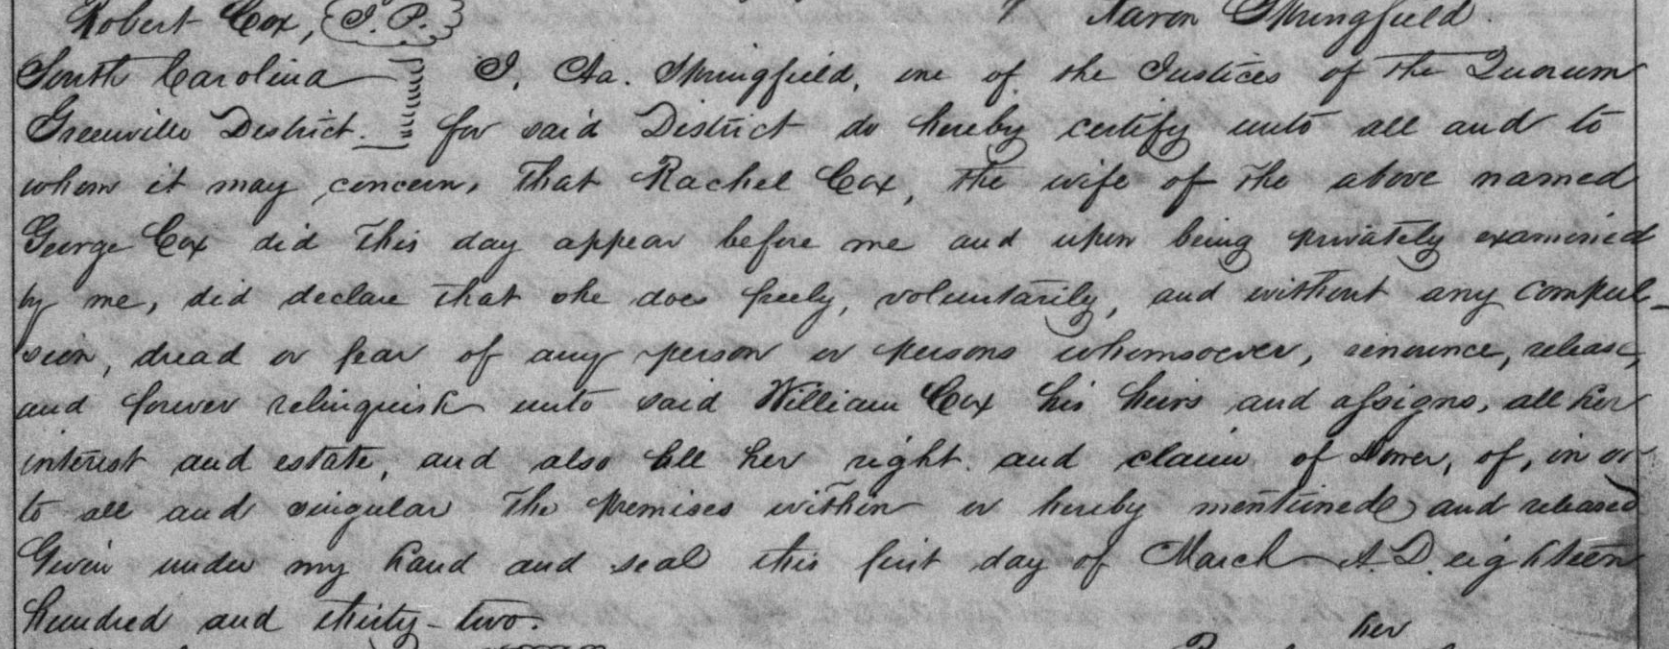 Robert Cox, J. P. Aaron Springfield.
South Carolina I, Aa. Springfield, one of the Justices of the Quorum
Greenville District. for said District do hereby certify unto all and to
whom it may concern, that Rachel Cox, the wife of the above named
George Cox did this day appear before me and upon being privately examined
by me, did declare that she does freely, voluntarily, and without any compul-
sion, dread or fear of any person or persons whomsoever, renounce, release,
and forever relinquish unto said William Cox his heirs and assigns, all her
interest and estate, and also all her right and claim of Dower, of, in or
to all and singular the premises within or hereby mentioned and released
Given under my hand and seal this first day of March A. D. eighteen
hundred and thirty-two.
her